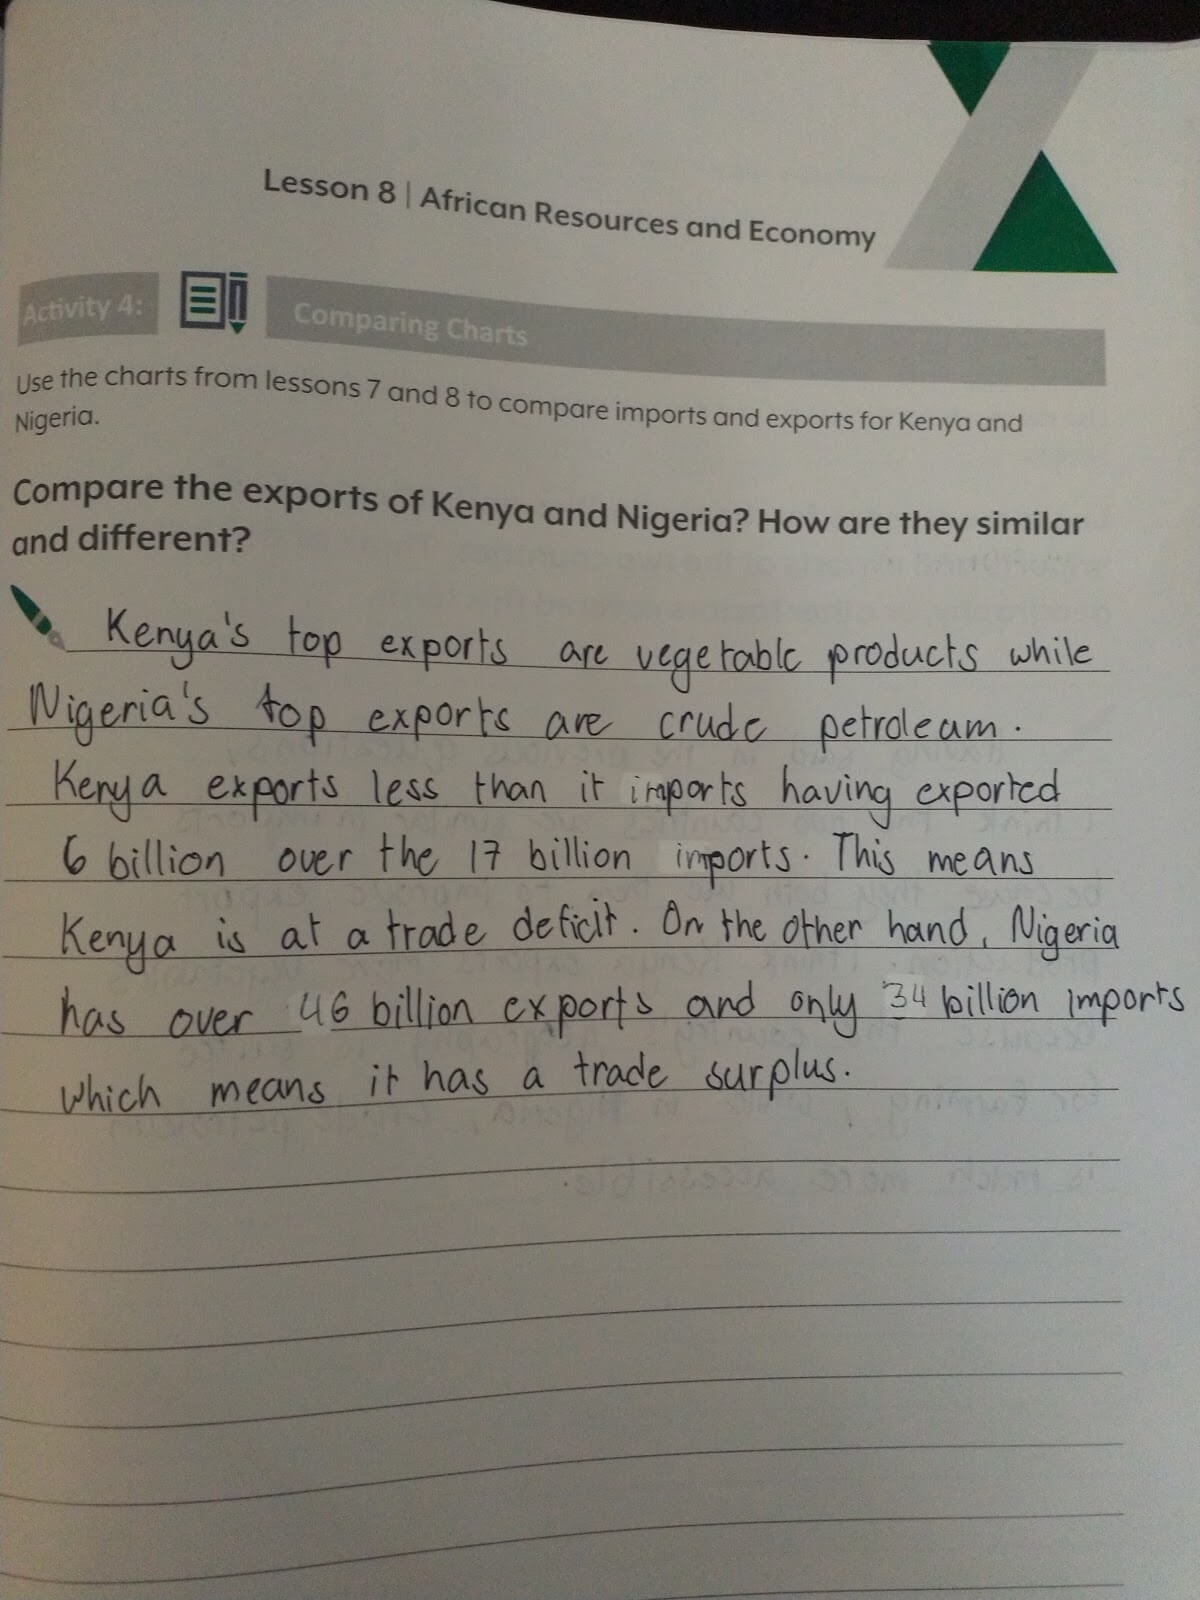 Lesson 8 | African Resources and Economy
Activity 4:
Comparing Charts
Use the charts from lessons 7 and 8 to compare imports and exports for Kenya and
Nigeria.
Compare the exports of Kenya and Nigeria? How are they similar
and different?
Kenya's top exports are vegetable products while
Nigeria's top exports are crude petroleam.
Kenya exports less than it imports having exported
6 billion over the 17 billion imports. This means
Kenya is at a trade deficit. On the other hand, Nigeria
has over 46 billion exports and only 34 billion imports
which means it has a trade surplus.